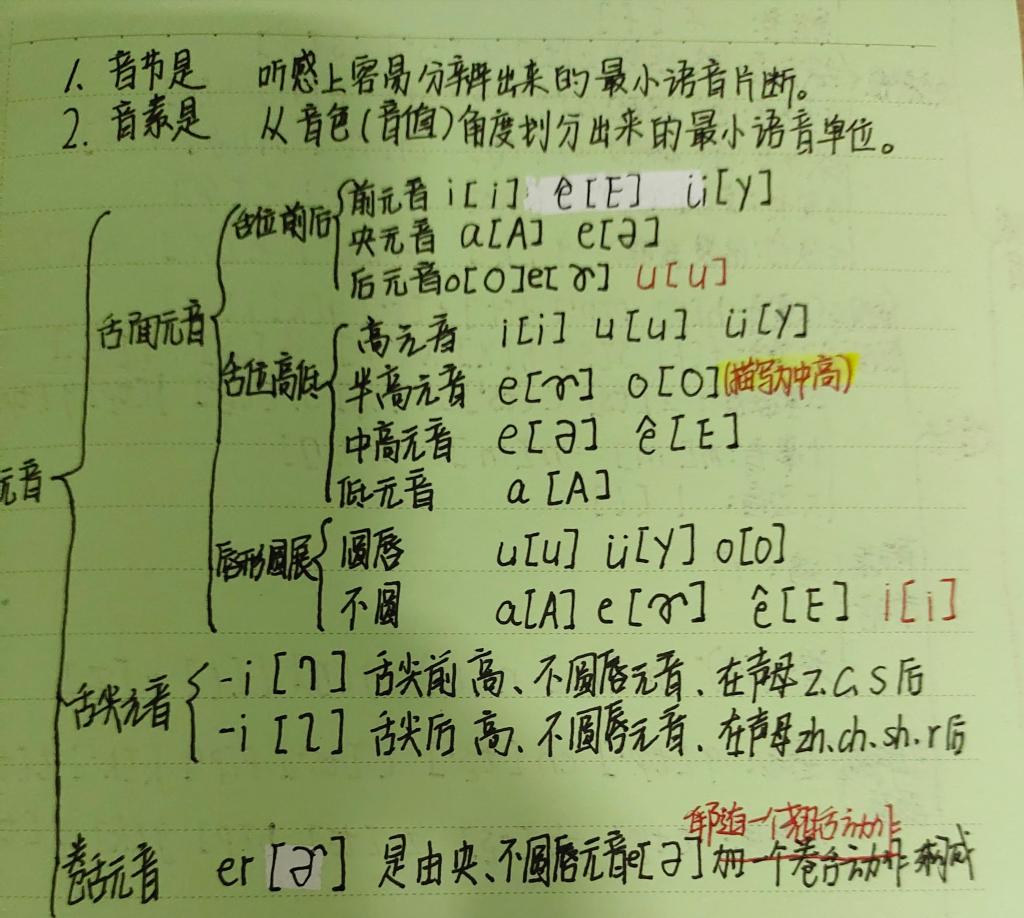 1. 音节是 听感上容易分辨出来的最小语音片断。
2. 音素是 从音色(音值)角度划分出来的最小语音单位。
前元音 i[i] ê[E] ü[y]
舌位前后
央元音 a[A] e[ə]
后元音o[O]e[ɤ] u[u]
舌面元音
高元音 i[i] u[u] ü[y]
舌位高低
半高元音 e[ɤ] o[O](描写为中高)
中高元音 e[ə] ê[E]
元音
低元音 a[A]
圆唇 u[u] ü[y] o[o]
唇形圆展
不圆 a[A] e[ɤ] ê[E] i[i]
-i[ɿ] 舌尖前高、不圆唇元音、在声母z、c、s后
舌尖元音
-i[ʅ] 舌尖后高、不圆唇元音、在声母zh、ch、sh、r后
卷舌元音 er[ɚ] 是由央、不圆唇元音e[ə]加一个卷舌动作